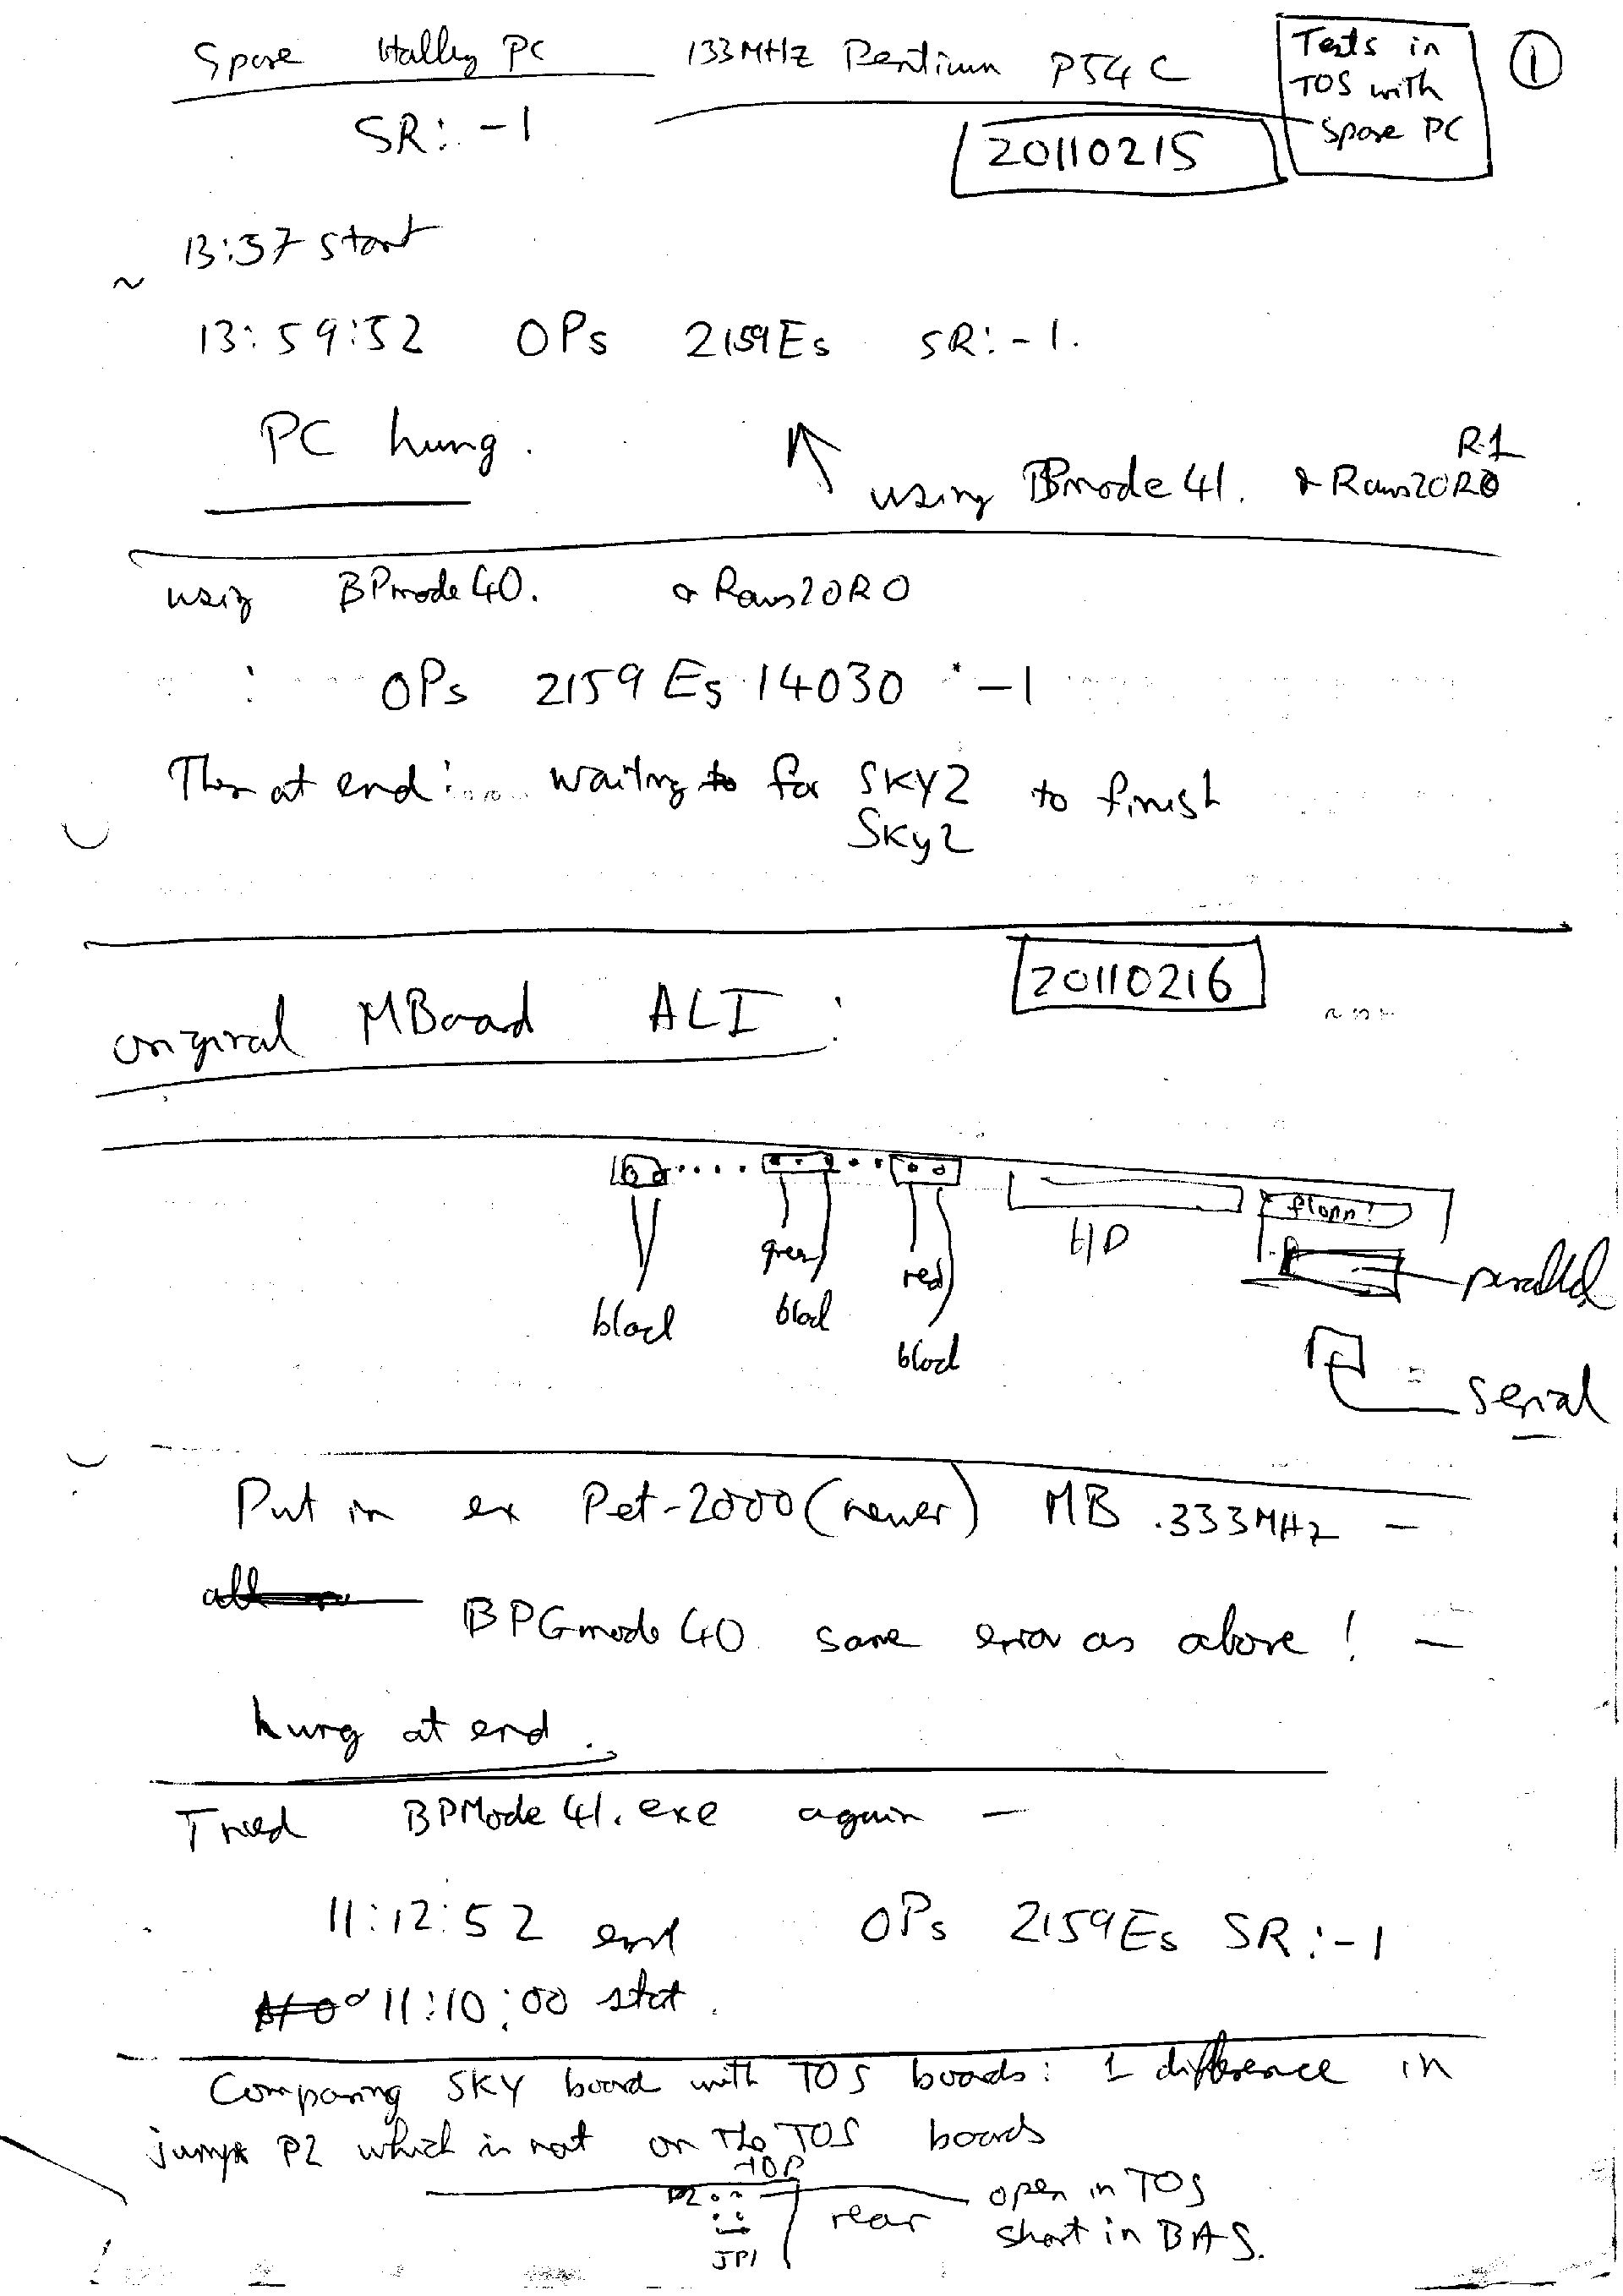 Spare Halley PC 133MHz Pentium P54C
Tests in
TOS with
Spare PC
①
SR: -1
20110215
13:37 start
~
13:59:52 OPs 2159Es SR: -1.
PC hung.
R1
using BPmode41. & Raws20R0
using BPmode40. & Raws20R0
: OPs 2159Es 14030 * -1
Then at end: .... waiting to for SKY2 to finish
Sky2
20110216
original MBoard ALI :
green
red
HD
parallel
black
black
black
= serial
Put in ex Pet-2000 (newer) MB .333MHz -
BPGmode40 same error as above! -
hung at end.
Tried BPMode41.exe again -
11:12:52 end OPs 2159Es SR: -1
11:10:00 stat.
Comparing SKY board with TOS boards: 1 difference in
jumper P2 which is not on the TOS boards
TOP
P2
rear
open in TOS
short in BAS.
JP1